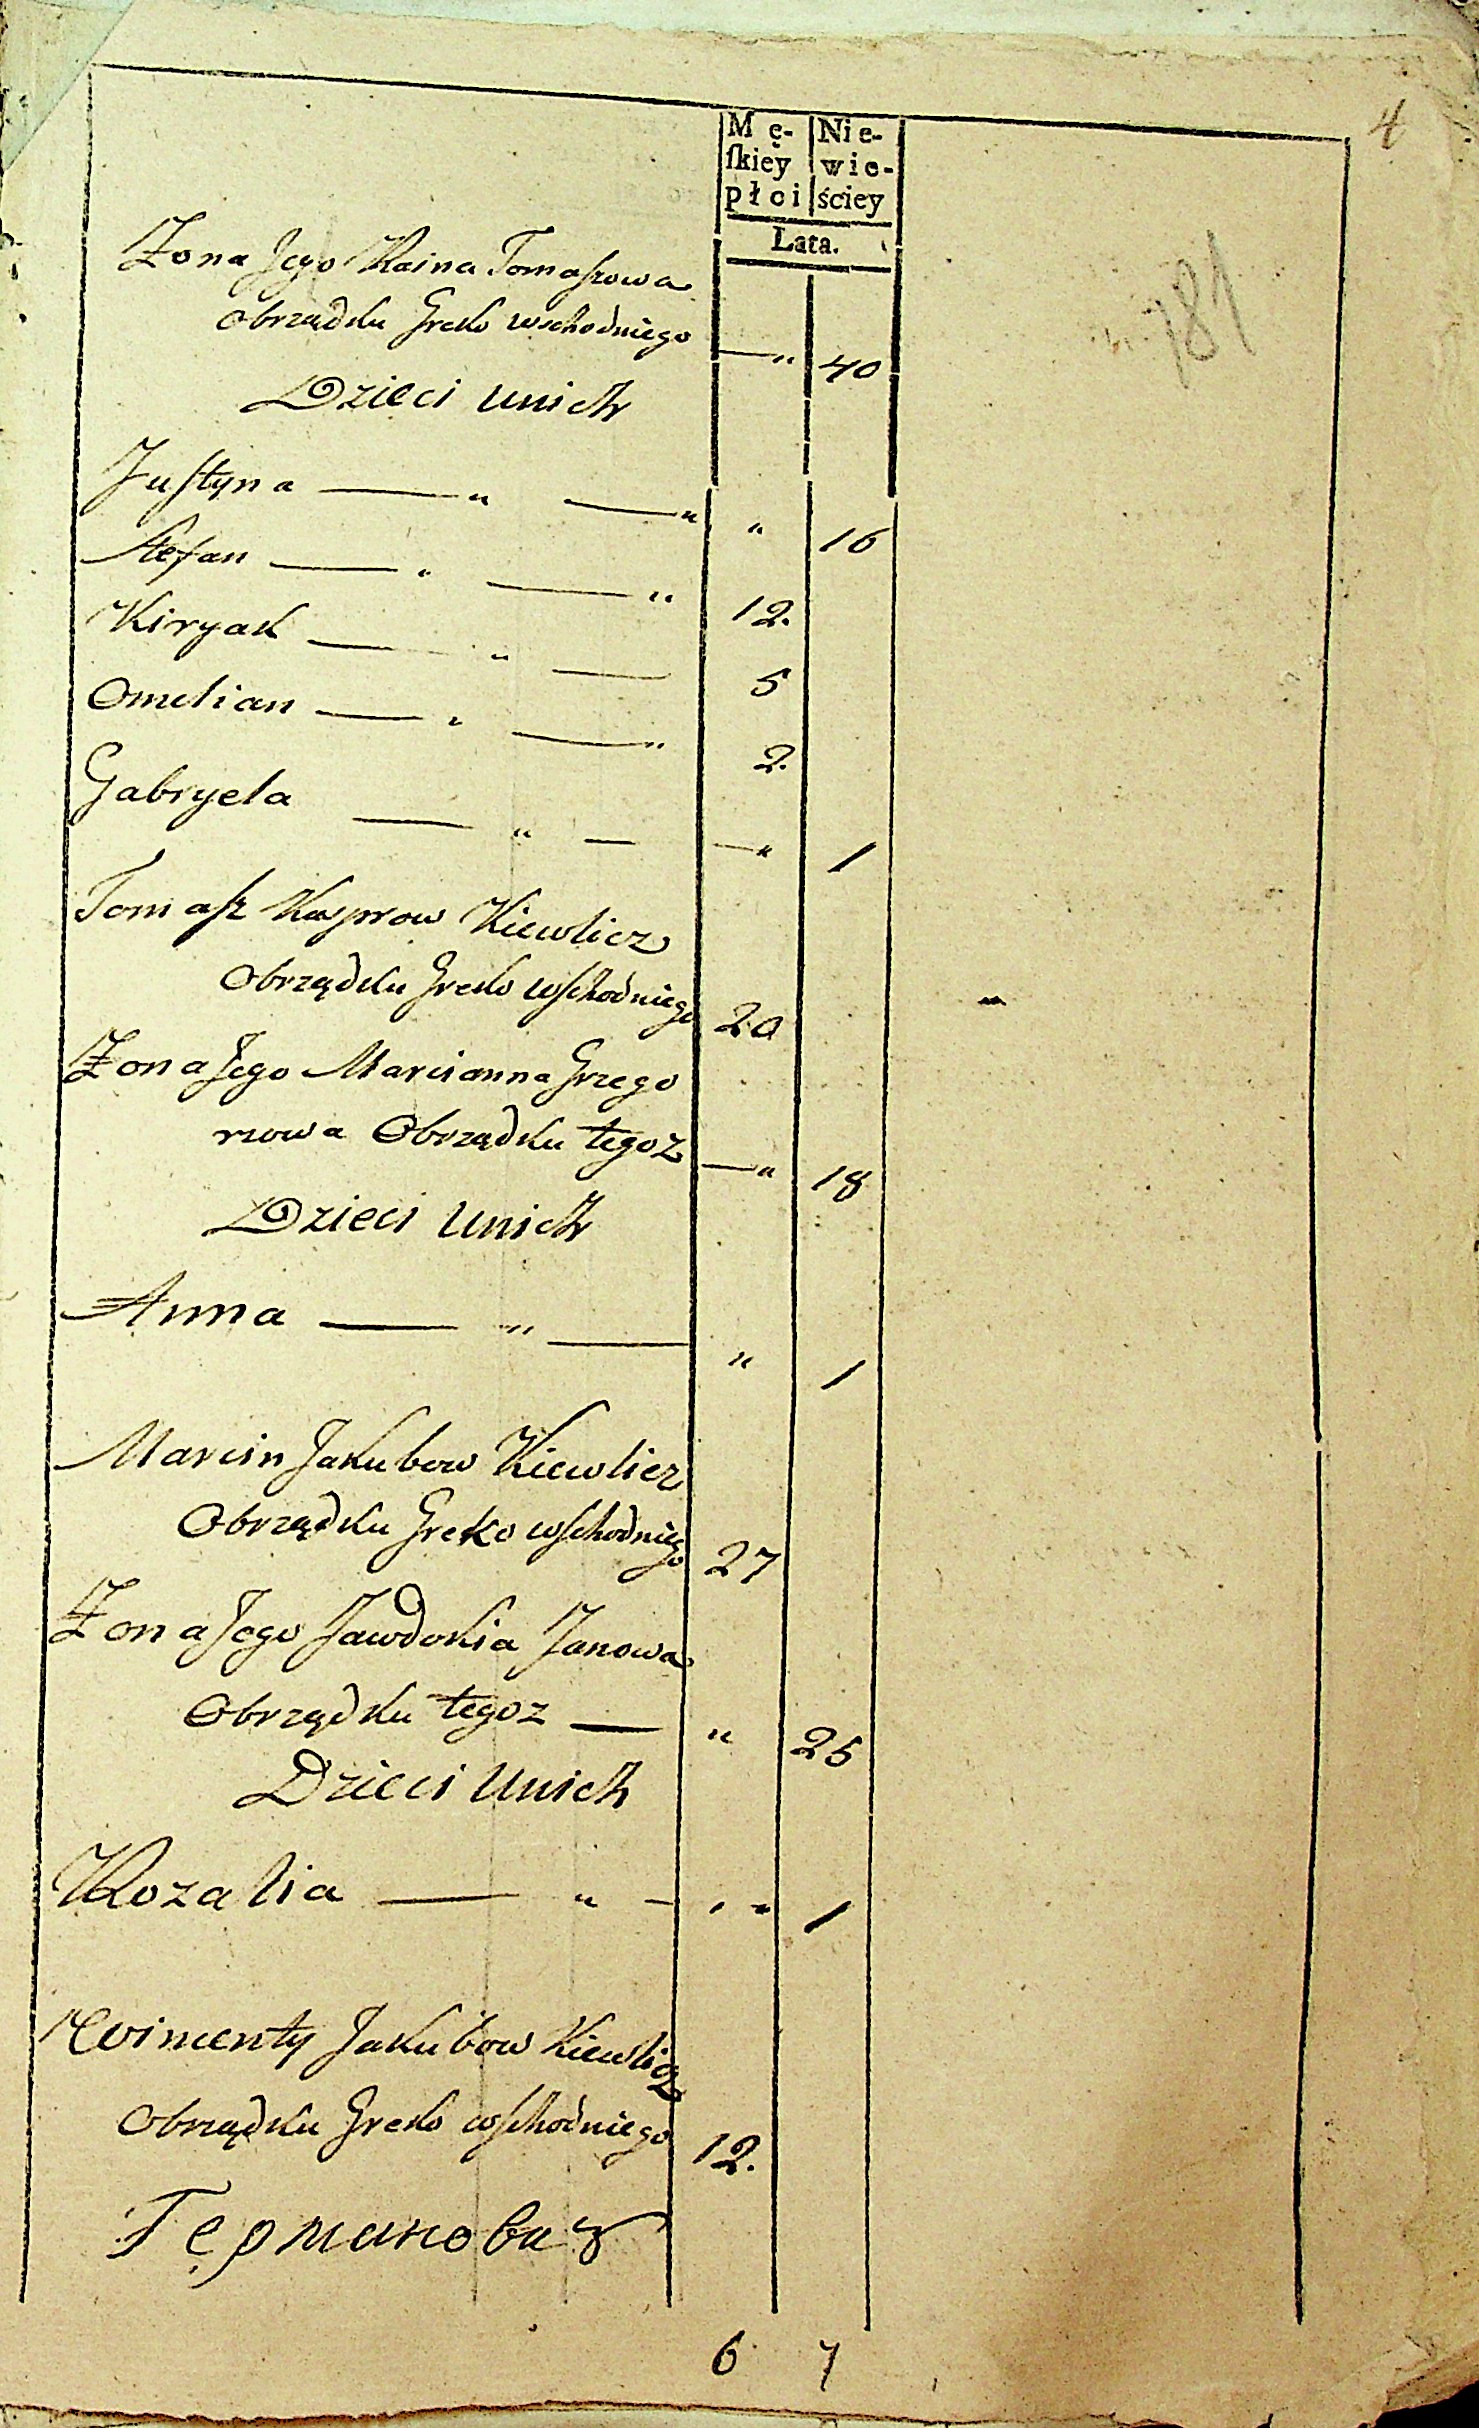 4
Mę- Nie-
ſkiey wie-
płci ściey
Lata.
781
Żona Jego Raina Tomaſzowa
obrządku Greko wschodniego —" 40
Dzieci unich
Juſtyna —" —" " 16
Stefan —" —" 12.
Kiryak —" — 5
Omelian —" —" 2.
Gabryela —" — —" 1
Tomaſz Kasprow Kiewlicz
Obrządku Greko wſchodniego 20
Żona Jego Marcianna Grzego
rzowa Obrządku tegoz —" 18
Dzieci Unich
Anna —" — " 1
Marcin Jakubow Kiewlicz
Obrządku Greko wſchodniego 27
Żona Jego Jawdokia Janowa
Obrządku tegoz — " 25
Dzieci Unich
Rozalia —" — " 1
Wincenty Jakubow Kiewlicz
Obrządku Greko wſchodniego 12.
Германович
6 7